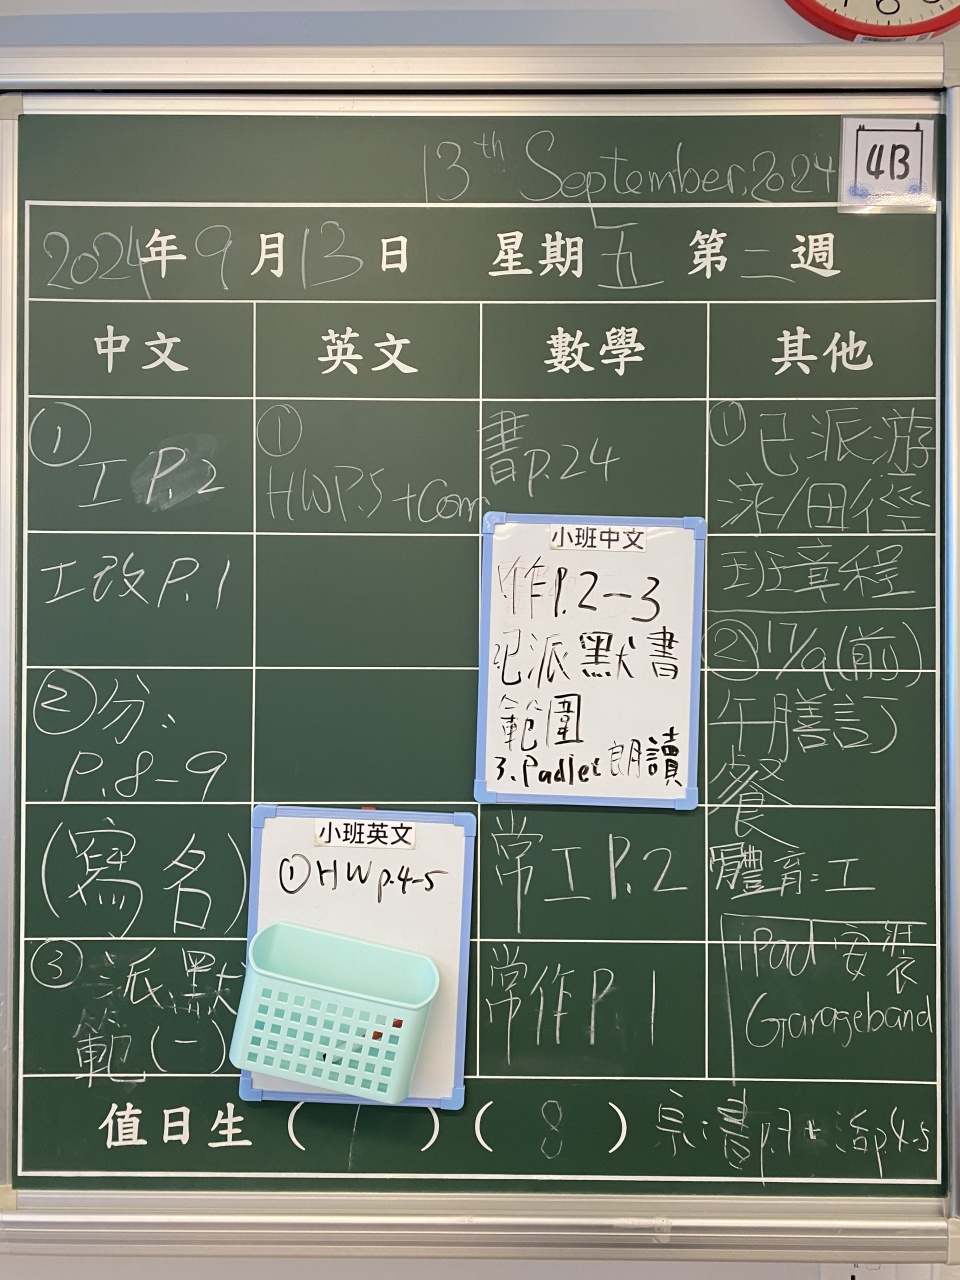 13th September, 2024
4B
2024年9月13日 星期五 第二週
中文 英文 數學 其他
① 工 P.2
工改 P.1
② 分:
P.8-9
(寫名)
③ 派默
範(一)
①
HW P.5 + Corr
小班英文
① HW p.4-5
書 p.24
小班中文
作 P.2-3
已派默書
範圍
3. Padlet 朗讀
常工 P.2
常作 P.1
① 已派游
泳/田徑
班章程
② 17/9(前)
午膳訂
餐
體育:工
iPad 安裝
Garageband
值日生 (1) (8)
書 p.7 + 活 p.4-5